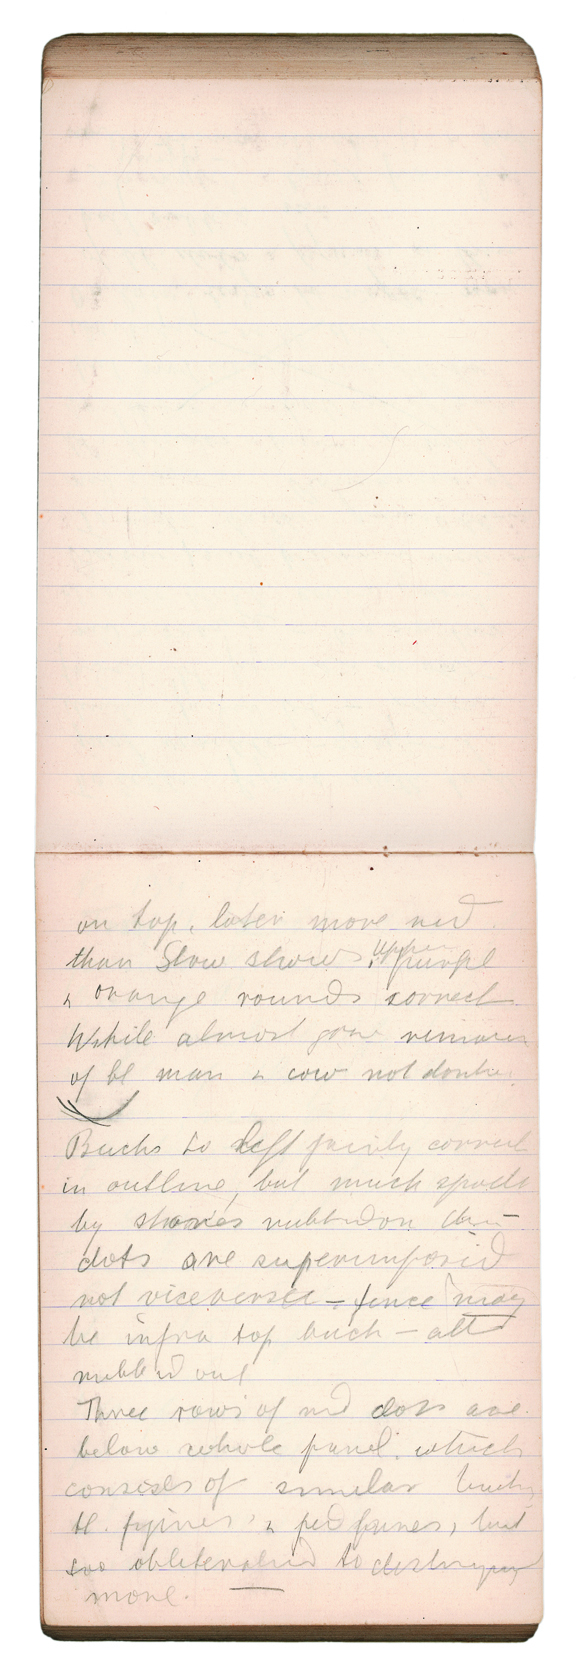 on top, later more red
than Stow shows, upper purple
& orange rounds correct.
While almost gone remains
of bl man & cow not doubt
Bucks to left fairly correct
in outline, but much spoilt
by stones rubbed on them
dots are superimposed
not viceversa – fence may
be infra top buck – all
rubbed out
Three rows of red dots are
below whole panel. which
consists of similar
bl. figures & red, but
too obliterated to
more.